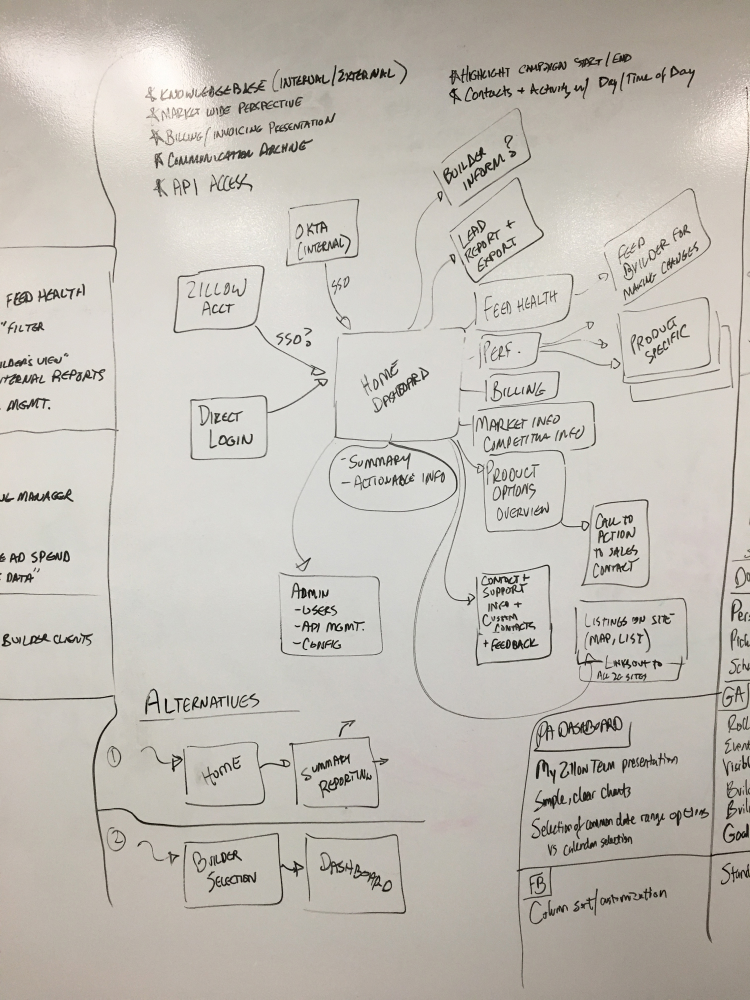 * KNOWLEDGEBASE (INTERNAL/EXTERNAL)
* MARKET WIDE PERSPECTIVE
* BILLING/INVOICING PRESENTATION
* COMMUNICATION ARCHIVE
* API ACCESS
* HIGHLIGHT CAMPAIGN START/END
* CONTACTS + ACTIVITY W/ DAY/TIME OF DAY
BUILDER
INFORM?
LEAD
REPORT +
EXPORT
OKTA
(INTERNAL)
SSO
ZILLOW
ACCT
SSO?
DIRECT
LOGIN
HOME
DASHBOARD
- SUMMARY
- ACTIONABLE INFO
FEED HEALTH
FEED
BUILDER FOR
MAKING CHANGES
PERF.
PRODUCT
SPECIFIC
BILLING
MARKET INFO
COMPETITIVE INFO
PRODUCT
OPTIONS
OVERVIEW
CALL TO
ACTION
TO SALES
CONTACT
CONTACT +
SUPPORT
INFO +
CUSTOM
CONTACTS
+ FEEDBACK
LISTINGS ON SITE
(MAP, LIST)
LINKS OUT TO
ALL ZG SITES
ADMIN
- USERS
- API MGMT.
- CONFIG
FEED HEALTH
"FILTER
VIEW"
REPORTS
MGMT.
MANAGER
AD SPEND
DATA"
BUILDER CLIENTS
ALTERNATIVES
1
HOME
SUMMARY
REPORTING
2
BUILDER
SELECTION
DASHBOARD
PA DASHBOARD
My Zillow Team presentation
Simple, clear charts
Selection of common date range options
vs calendar selection
FB
Column sort/customization
GA
Goal